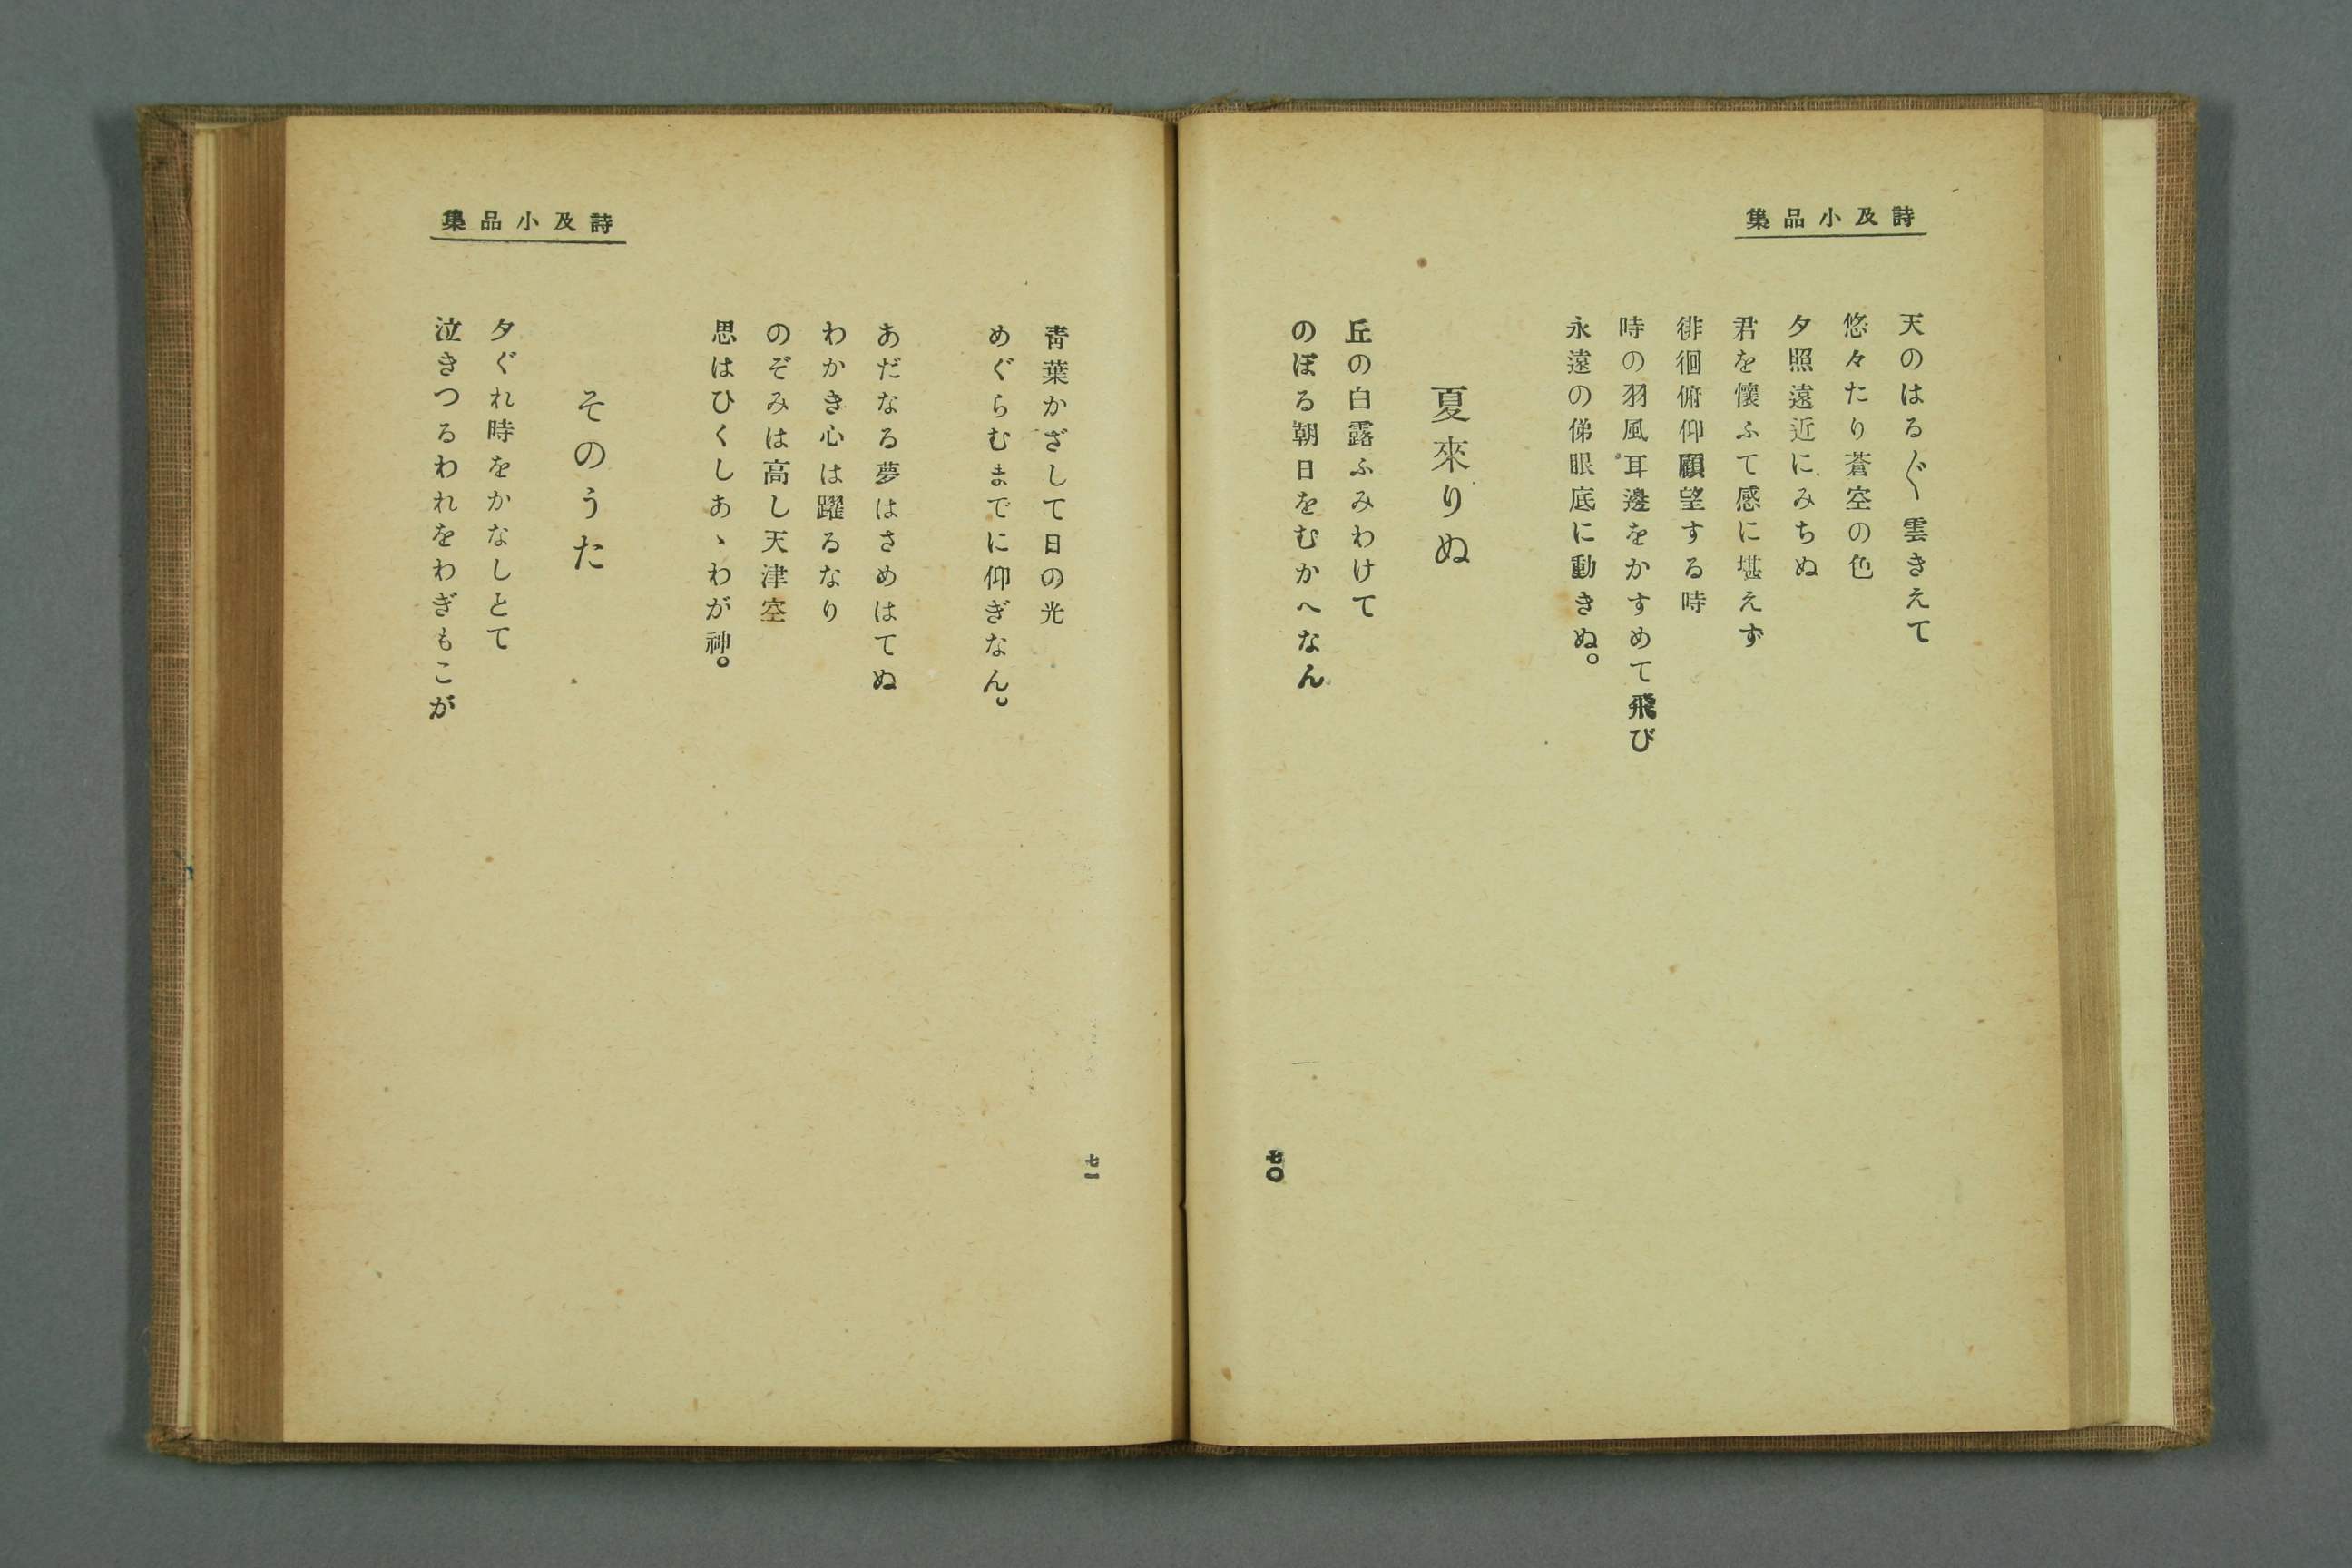 詩及小品集
天のはる〴〵雲きえて
悠々たり蒼空の色
夕照遠近にみちぬ
君を懷ふて感に堪えず
徘徊俯仰顧望する時
時の羽風耳邊をかすめて飛び
永遠の俤眼底に動きぬ。
夏來りぬ
丘の白露ふみわけて
のぼる朝日をむかへなん
七〇
詩及小品集
靑葉かざして日の光
めぐらむまでに仰ぎなん。
あだなる夢はさめはてぬ
わかき心は躍るなり
のぞみは高し天津空
思はひくしあゝわが神。
そのうた
夕ぐれ時をかなしとて
泣きつるわれをわぎもこが
七一